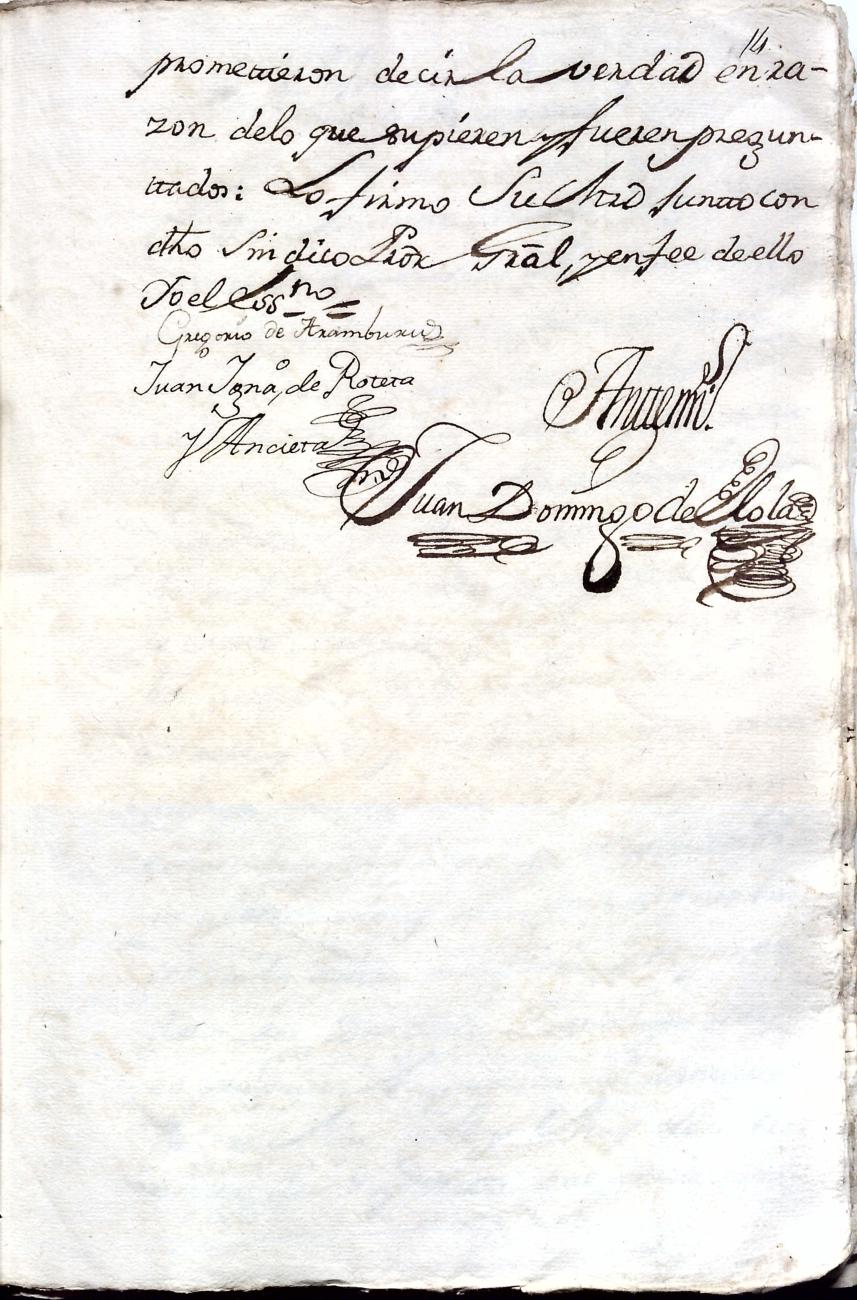 14
promettieron decir la verdad en ra-
zon delo que supieren y fueren pregun-
ttados: Lo firmo Su Mrd juntto con
dho Sindico Pror Gral, y enfee de ello
Yo el Essno
Gregorio de Aramburu
Juan Igno, de Roteta
y Ancieta
Anttemi
Juan Domingo de Elola